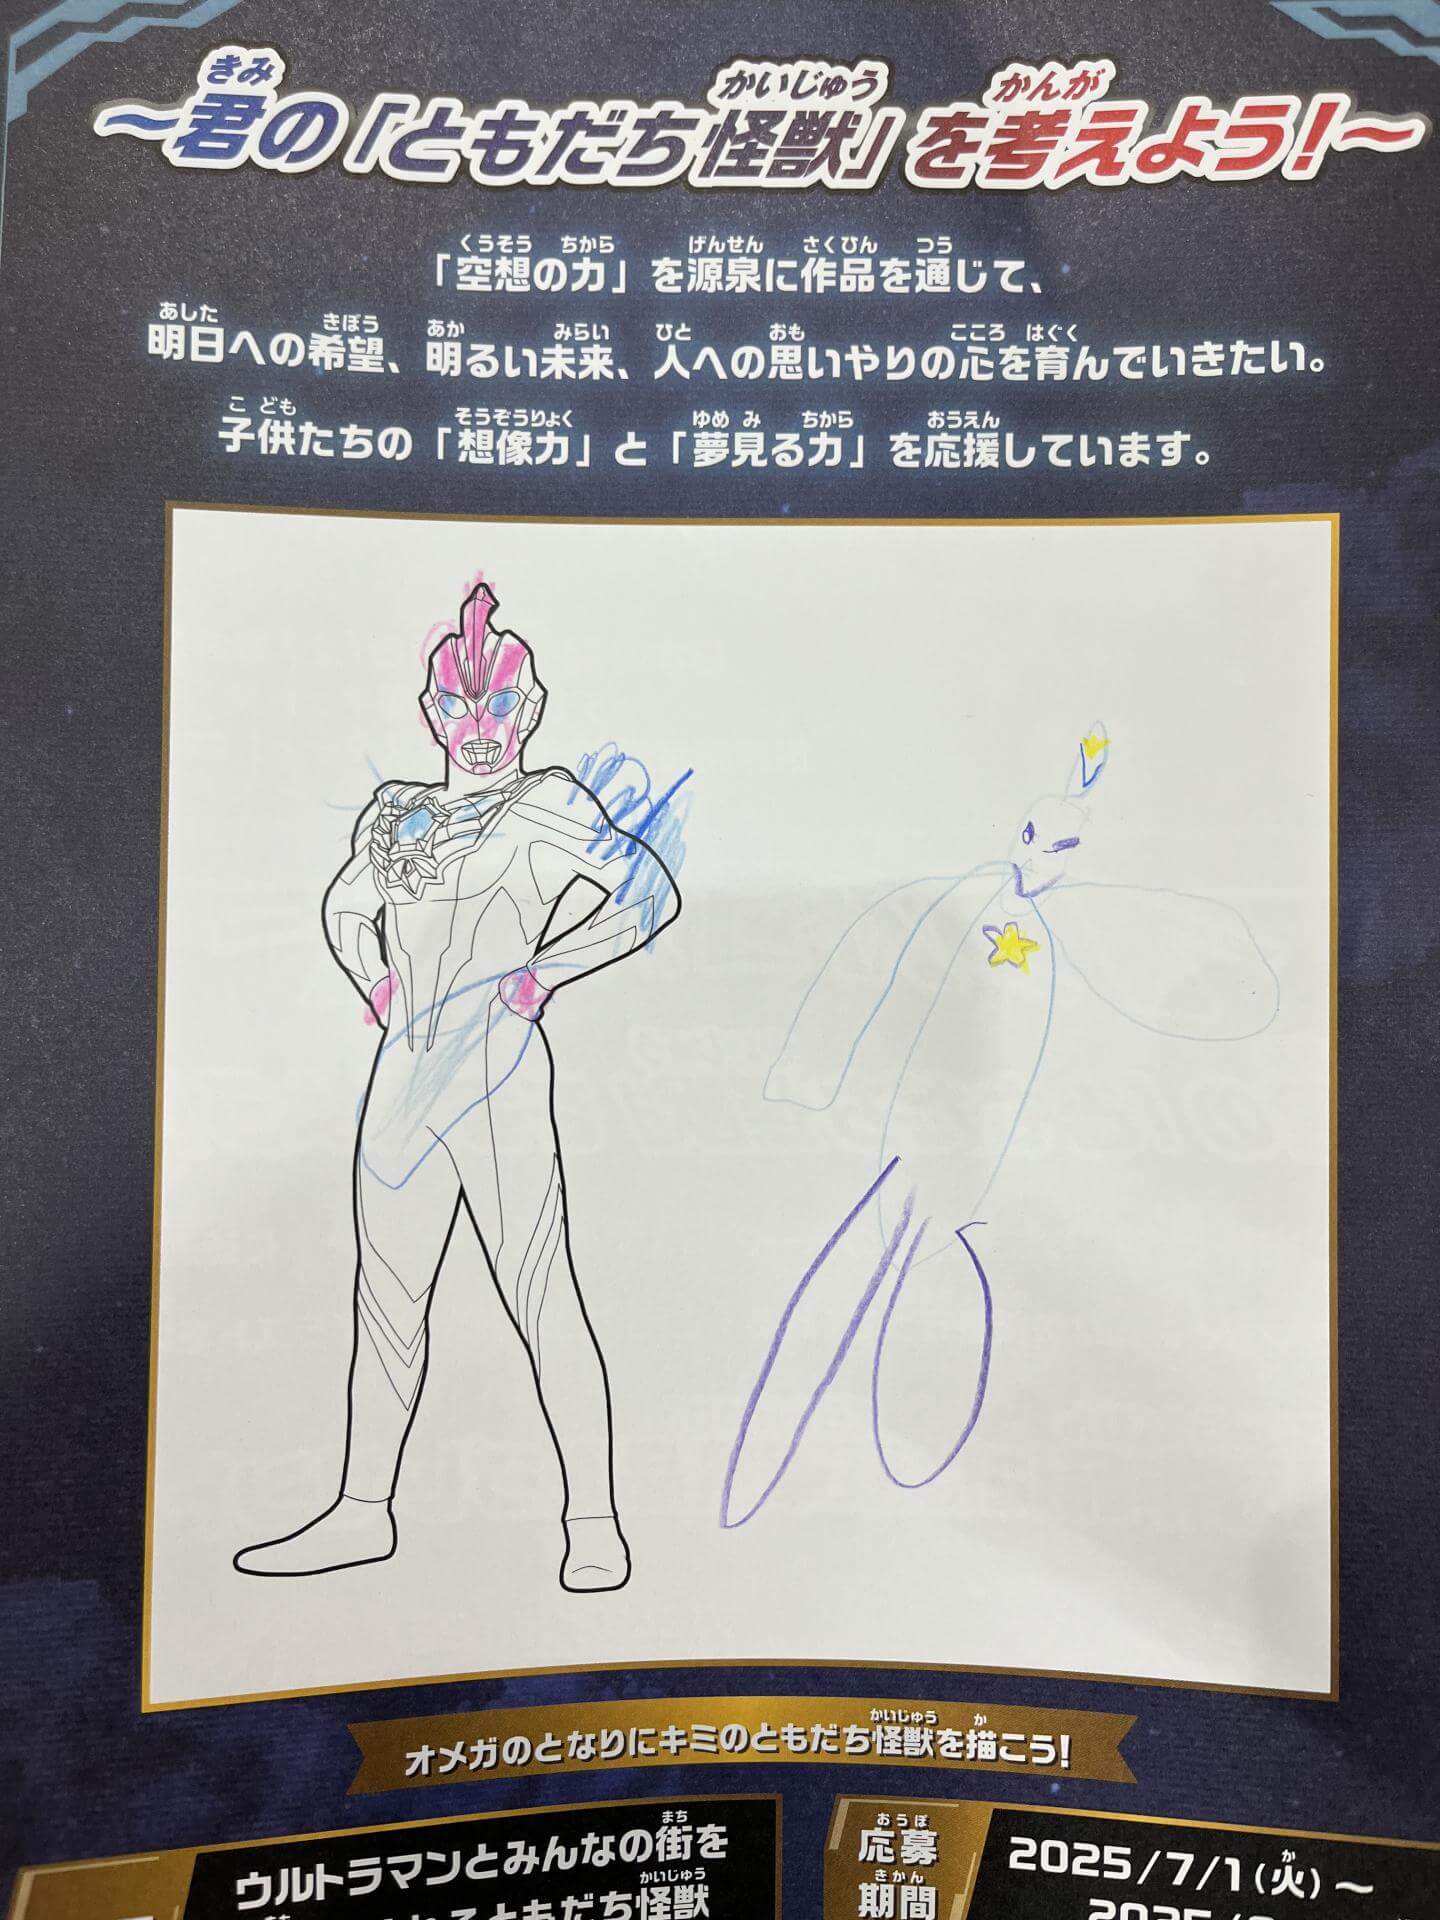 ～君の「ともだち怪獣」を考えよう！～
きみ かいじゅう かんが
「空想の力」を源泉に作品を通じて、
くうそう ちから げんせん さくひん つう
明日への希望、明るい未来、人への思いやりの心を育んでいきたい。
あした きぼう あか みらい ひと おも こころ はぐく
子供たちの「想像力」と「夢見る力」を応援しています。
こども そうぞうりょく ゆめみ ちから おうえん
オメガのとなりにキミのともだち怪獣を描こう！
かいじゅう か
ウルトラマンとみんなの街を
まち
ともだち怪獣
かいじゅう
応募
おうぼ
期間
きかん
2025/7/1(火)～
か